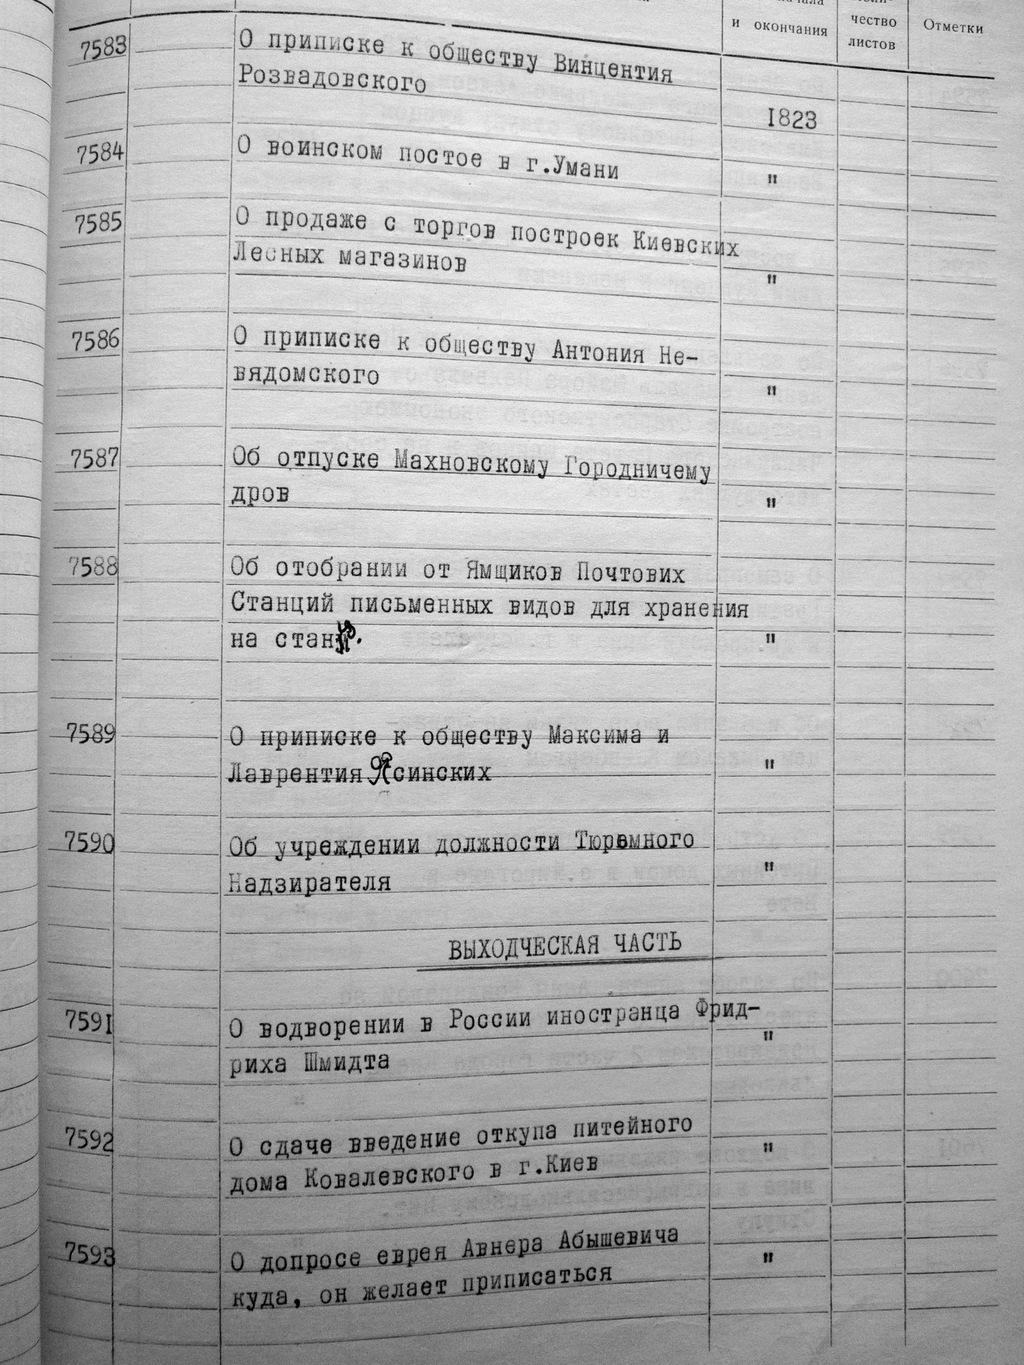 и окончания
чество
листов
Отметки
7583 О приписке к обществу Винцентия
Розвадовского 1823
7584 О воинском постое в г.Умани "
7585 О продаже с торгов построек Киевских
Лесных магазинов "
7586 О приписке к обществу Антония Не-
вядомского "
7587 Об отпуске Махновскому Городничему
дров "
7588 Об отобрании от Ямщиков Почтових
Станций письменных видов для хранения
на "
7589 О приписке к обществу Максима и
Лаврентия Ясинских "
7590 Об учреждении должности Тюремного
Надзирателя "
ВЫХОДЧЕСКАЯ ЧАСТЬ
7591 О водворении в России иностранца Фрид-
риха Шмидта "
7592 О сдаче введение откупа питейного
дома Ковалевского в г.Киев "
7593 О допросе еврея Авнера Абышевича
куда, он желает приписаться "